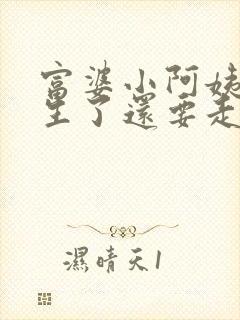 富婆小阿姨
生了還要走
濕晴天1